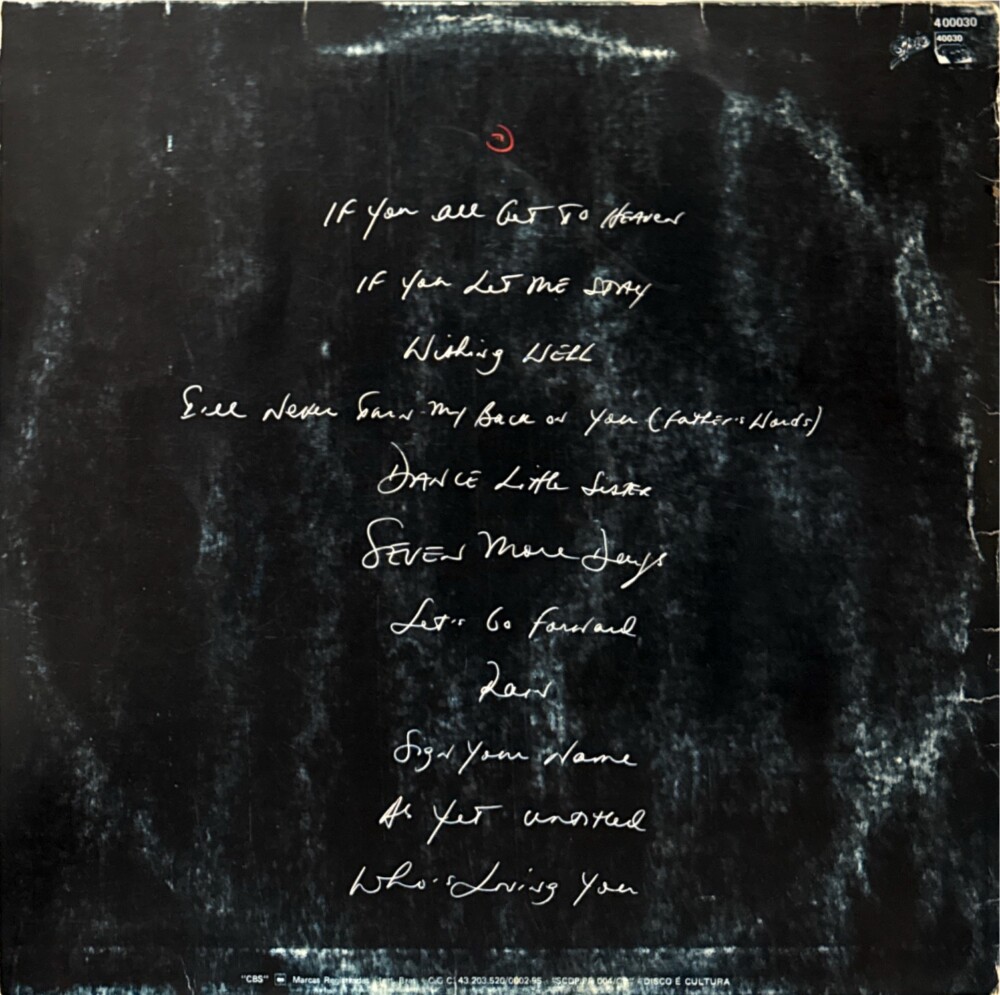 400030
Epic
40030
If You All Get To Heaven
If You Let Me Stay
Wishing Well
I'll Never Turn My Back on You (Father's Words)
Dance Little Sister
Seven More Days
Let's Go Forward
Rain
Sign Your Name
As Yet Untitled
Who's Loving You
"CBS" Marcas Registradas Ind. Bras. - C.G.C. 43.203.520/0002-95 - DISCO É CULTURA